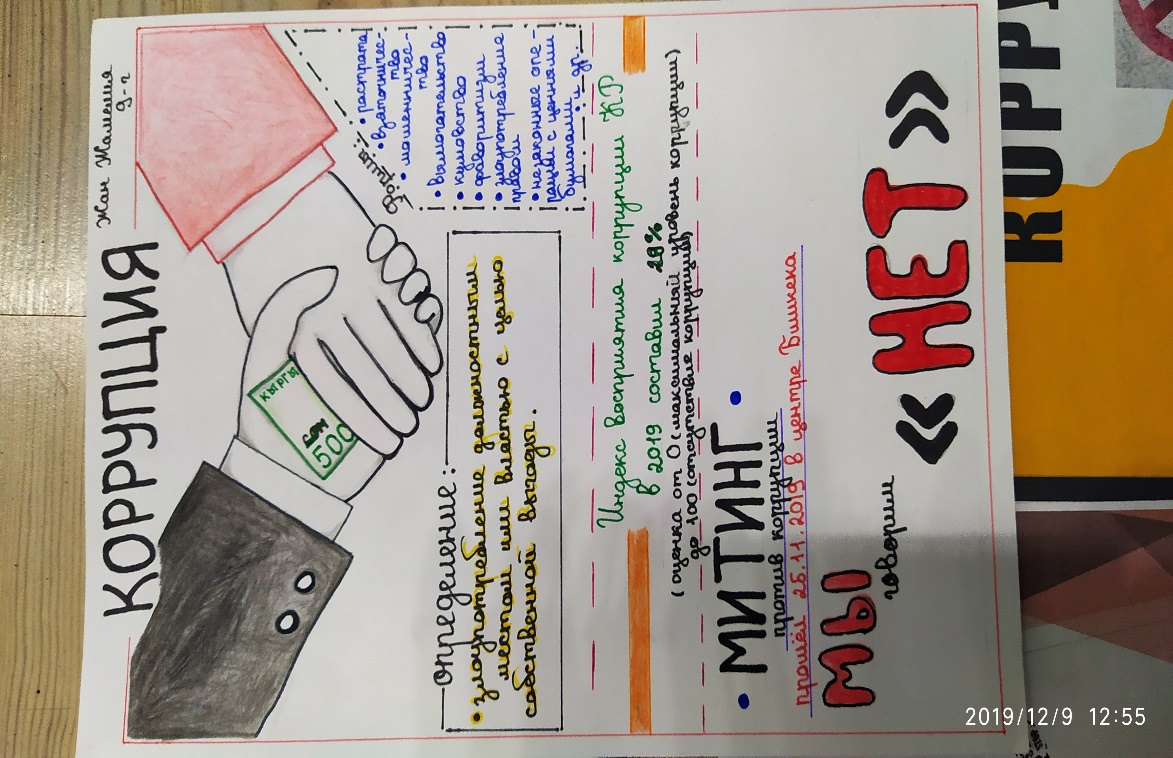 КОРРУПЦИЯ
Жан Жамейля
9-г
КЫРГЫ
500
Формы:
• растрата
• взяточничес-
тво
• мошенничес-
тво
• вымогательство
• кумовство
• фаворитизм
• злоупотребление
правом
• незаконные опе-
рации с ценными
бумагами и др.
определение:
• злоупотребление должностным
местом или властью с целью
собственной выгоды.
Индекс восприятия коррупции КР
в 2019 составил 28%
(оценка от 0 (максимальный уровень коррупции)
до 100 (отсутствие коррупции))
• МИТИНГ •
против коррупции
прошёл 25.11.2019 в центре Бишкека
МЫ
говорим
« НЕТ »
КОРРУ
2019/12/9 12:55